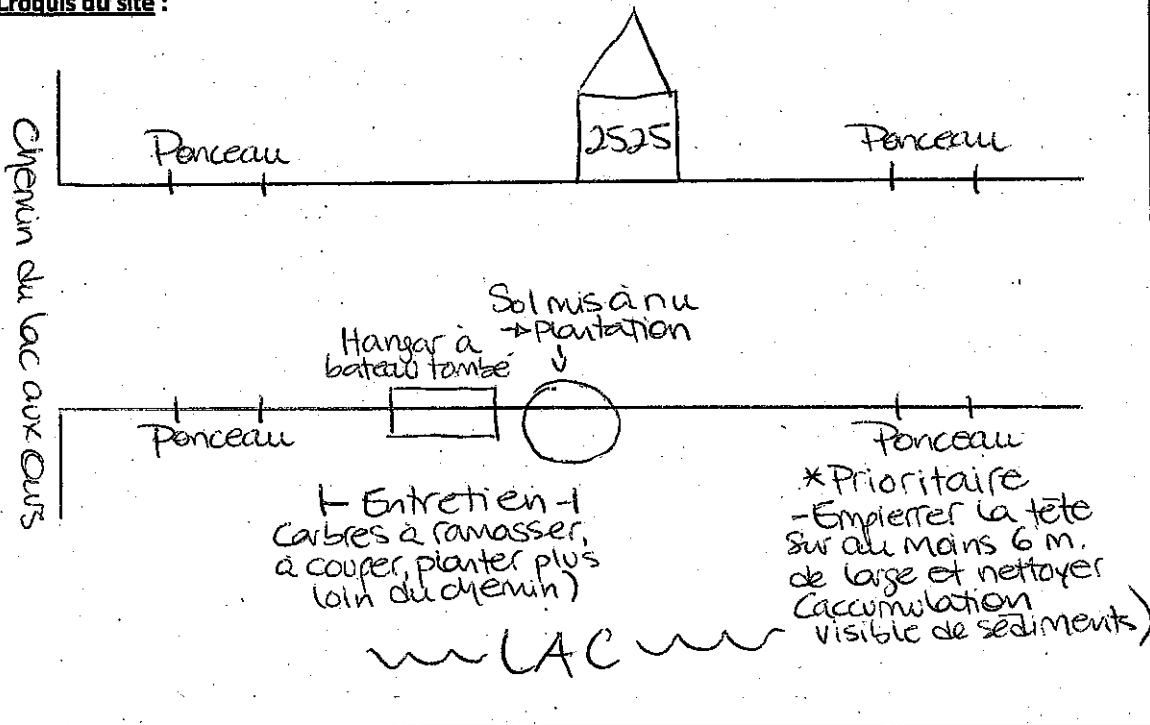 Croquis du site :
2525
Ponceau
Ponceau
Chemin du lac aux ours
Sol mis à nu
→ plantation
Hangar à
bateau tombé
Ponceau
Ponceau
Entretien
(arbres à ramasser,
à couper, planter plus
loin du chemin)
*Prioritaire
-Empierrer la tête
sur au moins 6 m.
de large et nettoyer
(accumulation
visible de sédiments)
LAC